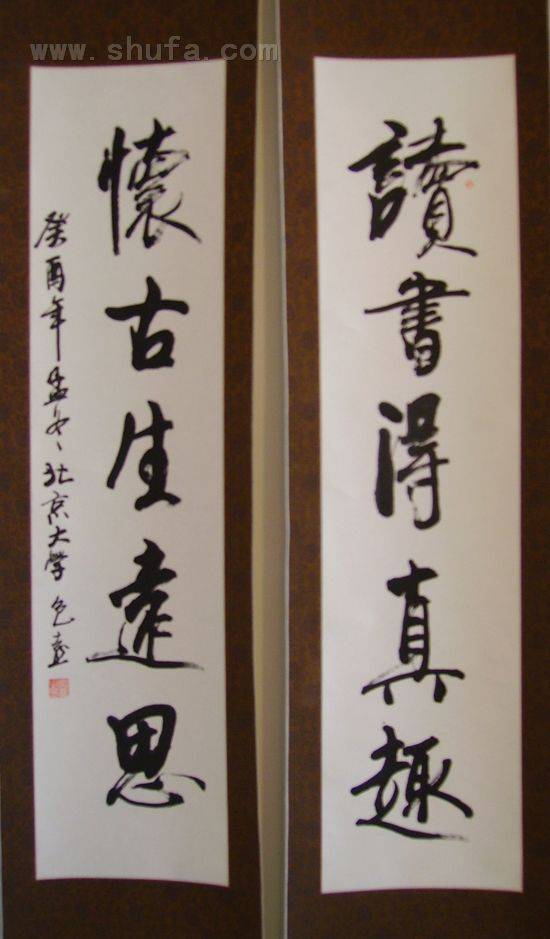 www.shufa.com
讀書得真趣
懷古生遠思
癸酉年孟冬北京大學